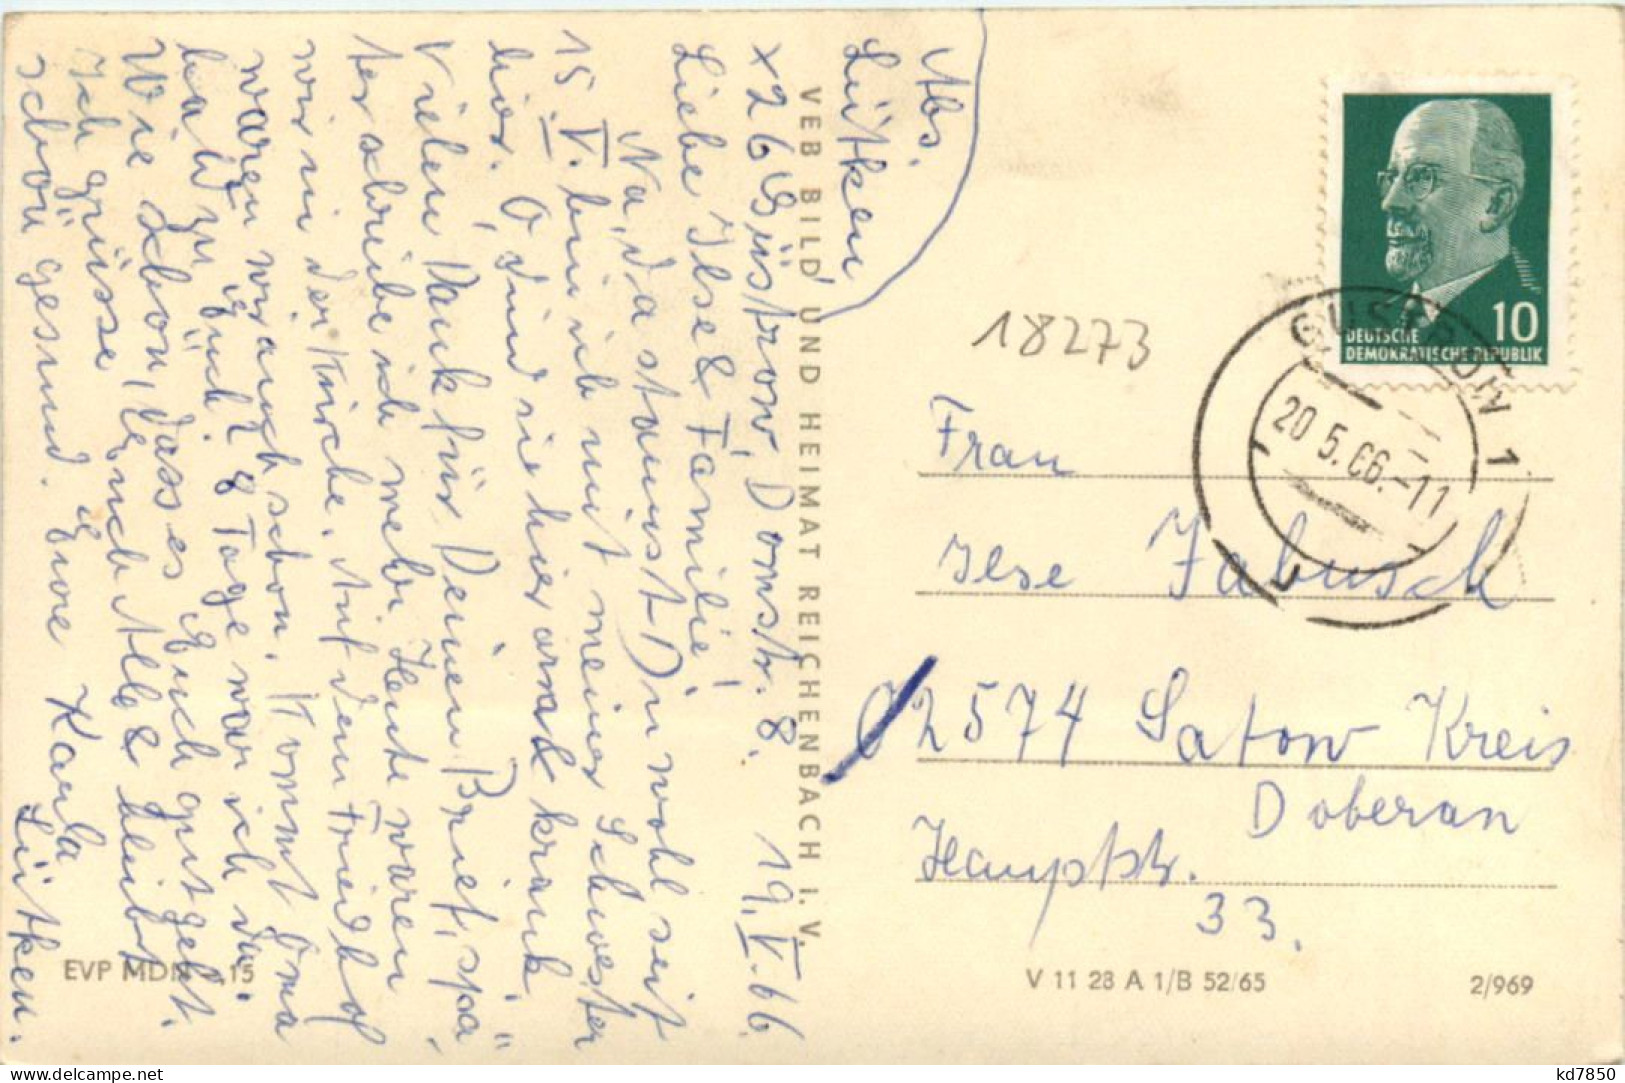 Abs.
Lütken
x 26 Güstrow, Domstr. 8. 19. V. 66
Liebe Ilse & Familie!
Na, da staunst Du wohl seit
15. V. bin ich mit meiner Schwester
hier. O, sind sie hier arrak krank.
Vielen Dank für Deinen Brief, spä-
ter schreibe ich mehr. Heute waren
wir in der Kirche. Auf dem Friedhof
waren wir auch schon. Kommt Oma
bald zu Euch? 8 Tage war ich da.
Wie schön, dass es Euch gut geht.
Ich grüsse Euch Alle & bleibt
schön gesund. Eure Karla
Lütken.
VEB BILD UND HEIMAT REICHENBACH I. V.
EVP MDN 15
DEUTSCHE
DEMOKRATISCHE REPUBLIK
10
GÜSTROW 1
20 5.66.-11
18273
Frau
Ilse Jabusch
2574 Satow Kreis
Doberan
Hauptstr.
33.
V 11 28 A 1/B 52/65
2/969
kd7850